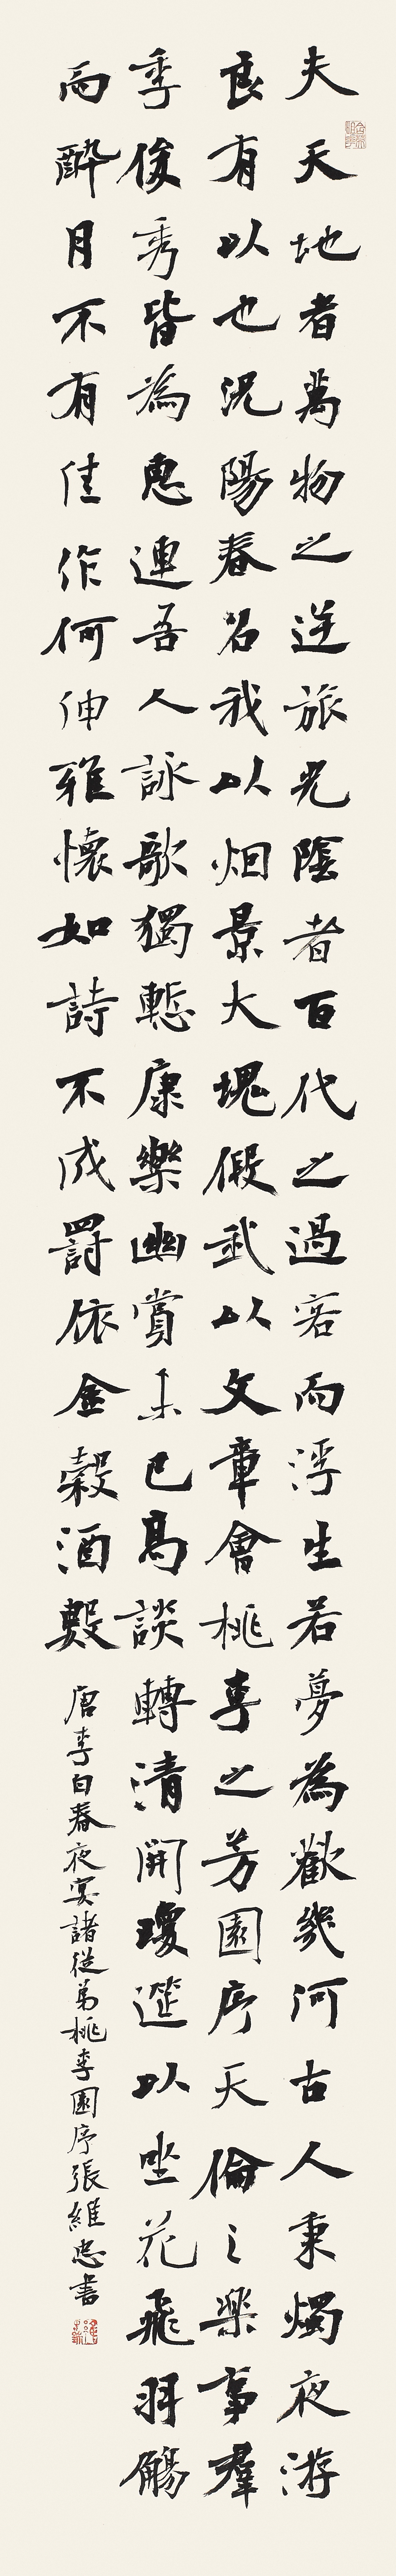 夫天地者萬物之逆旅光陰者百代之過客而浮生若夢為歡幾河古人秉燭夜游
良有以也況陽春召我以烟景大塊假武以文章會桃李之芳園序天倫之樂事羣
季俊秀皆為惠連吾人詠歌獨慙康樂幽賞未已高談轉清開瓊筵以坐花飛羽觴
而醉月不有佳作何伸雅懷如詩不成罰依金穀酒數
唐李白春夜宴諸從弟桃李園序張維忠書